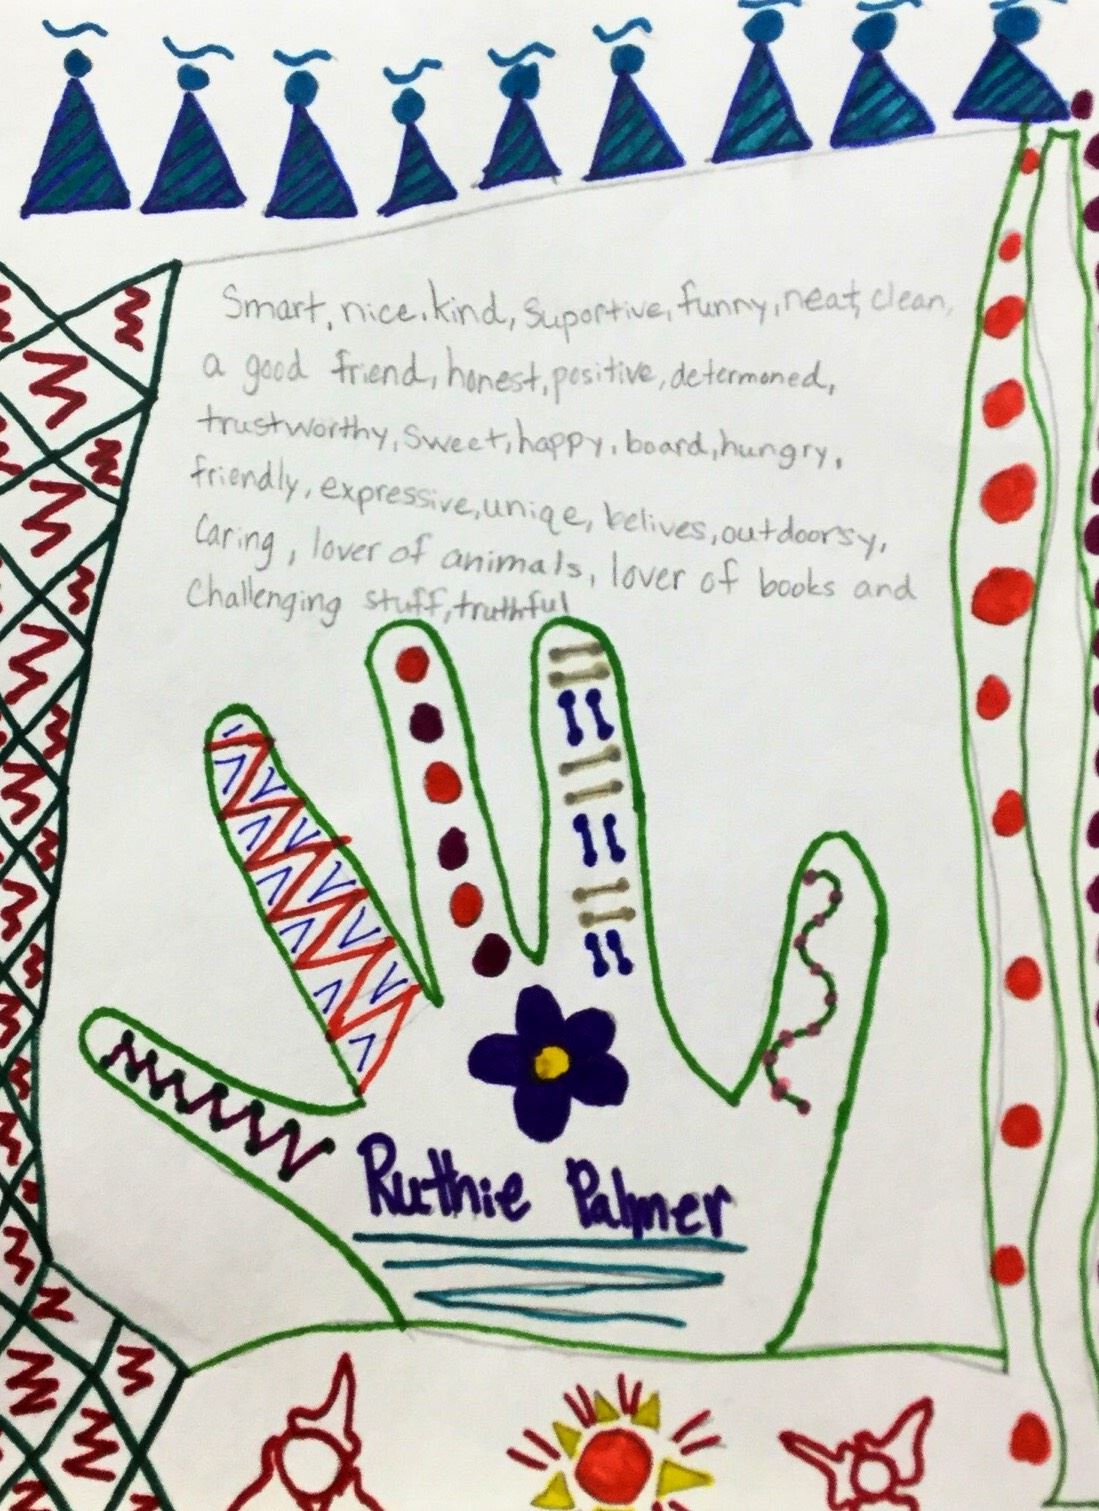 Smart, nice, kind, Suportive, funny, neat, clean,
a good friend, honest, positive, determened,
trustworthy, Sweet, happy, board, hungry,
friendly, expressive, uniqe, belives, outdoorsy,
Caring, lover of animals, lover of books and
Challenging stuff, truthful
Ruthie Palmer